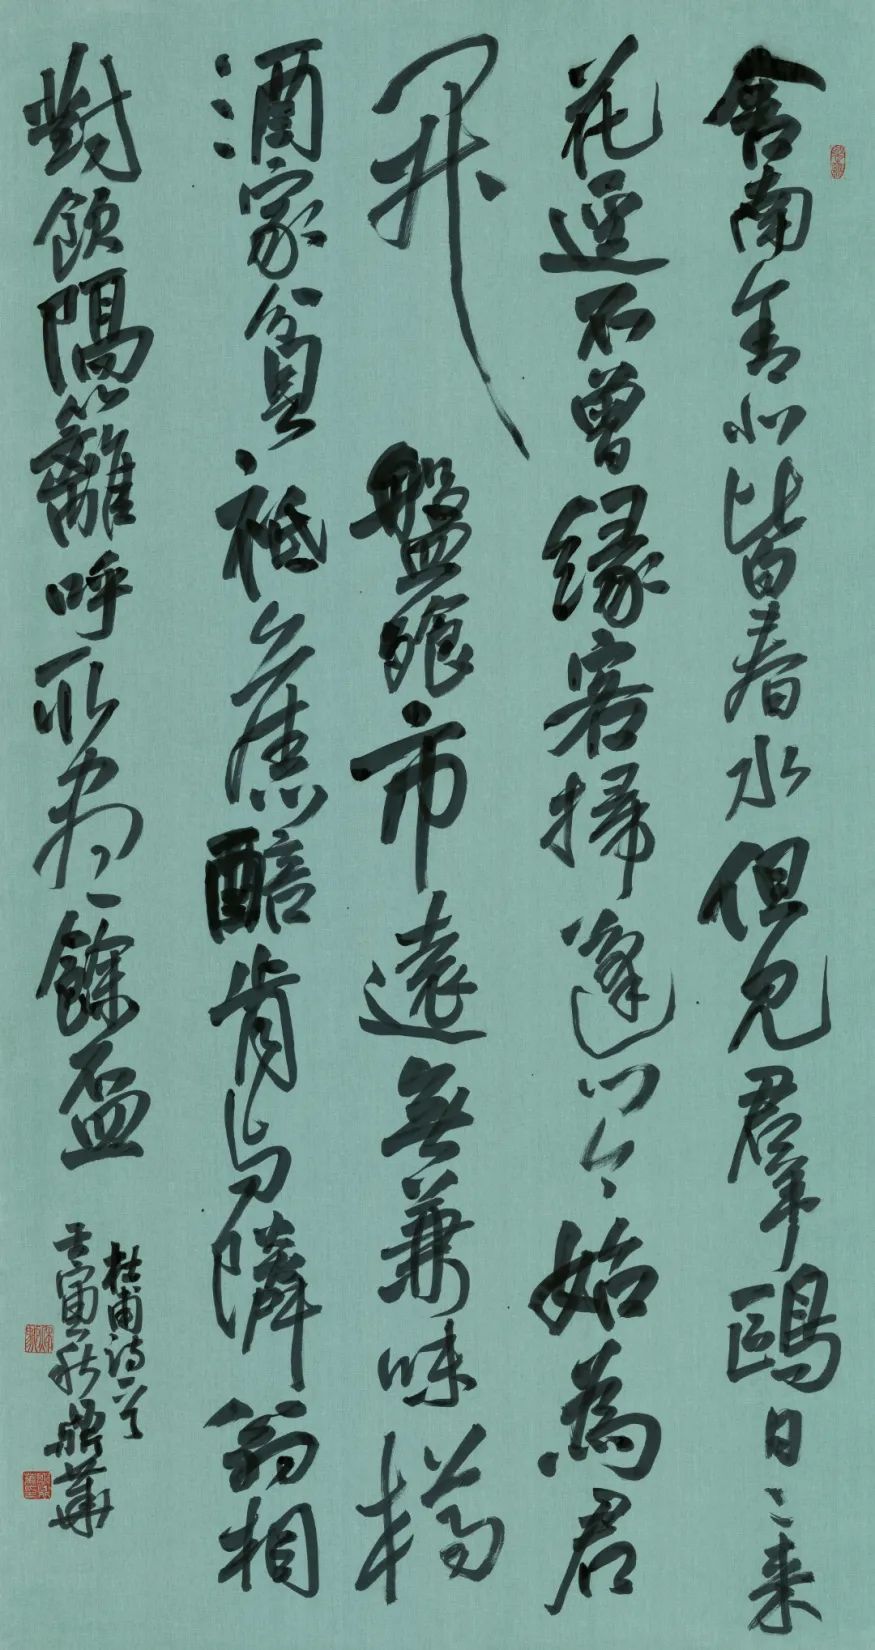 舍南舍北皆春水但見羣鷗日〻来
花逕不曾緣客掃蓬門今始為君
開盤飧市遠無兼味樽
酒家貧祗舊醅肯與隣翁相
對飲隔籬呼取盡餘盃
杜甫詩一首
壬寅秋華